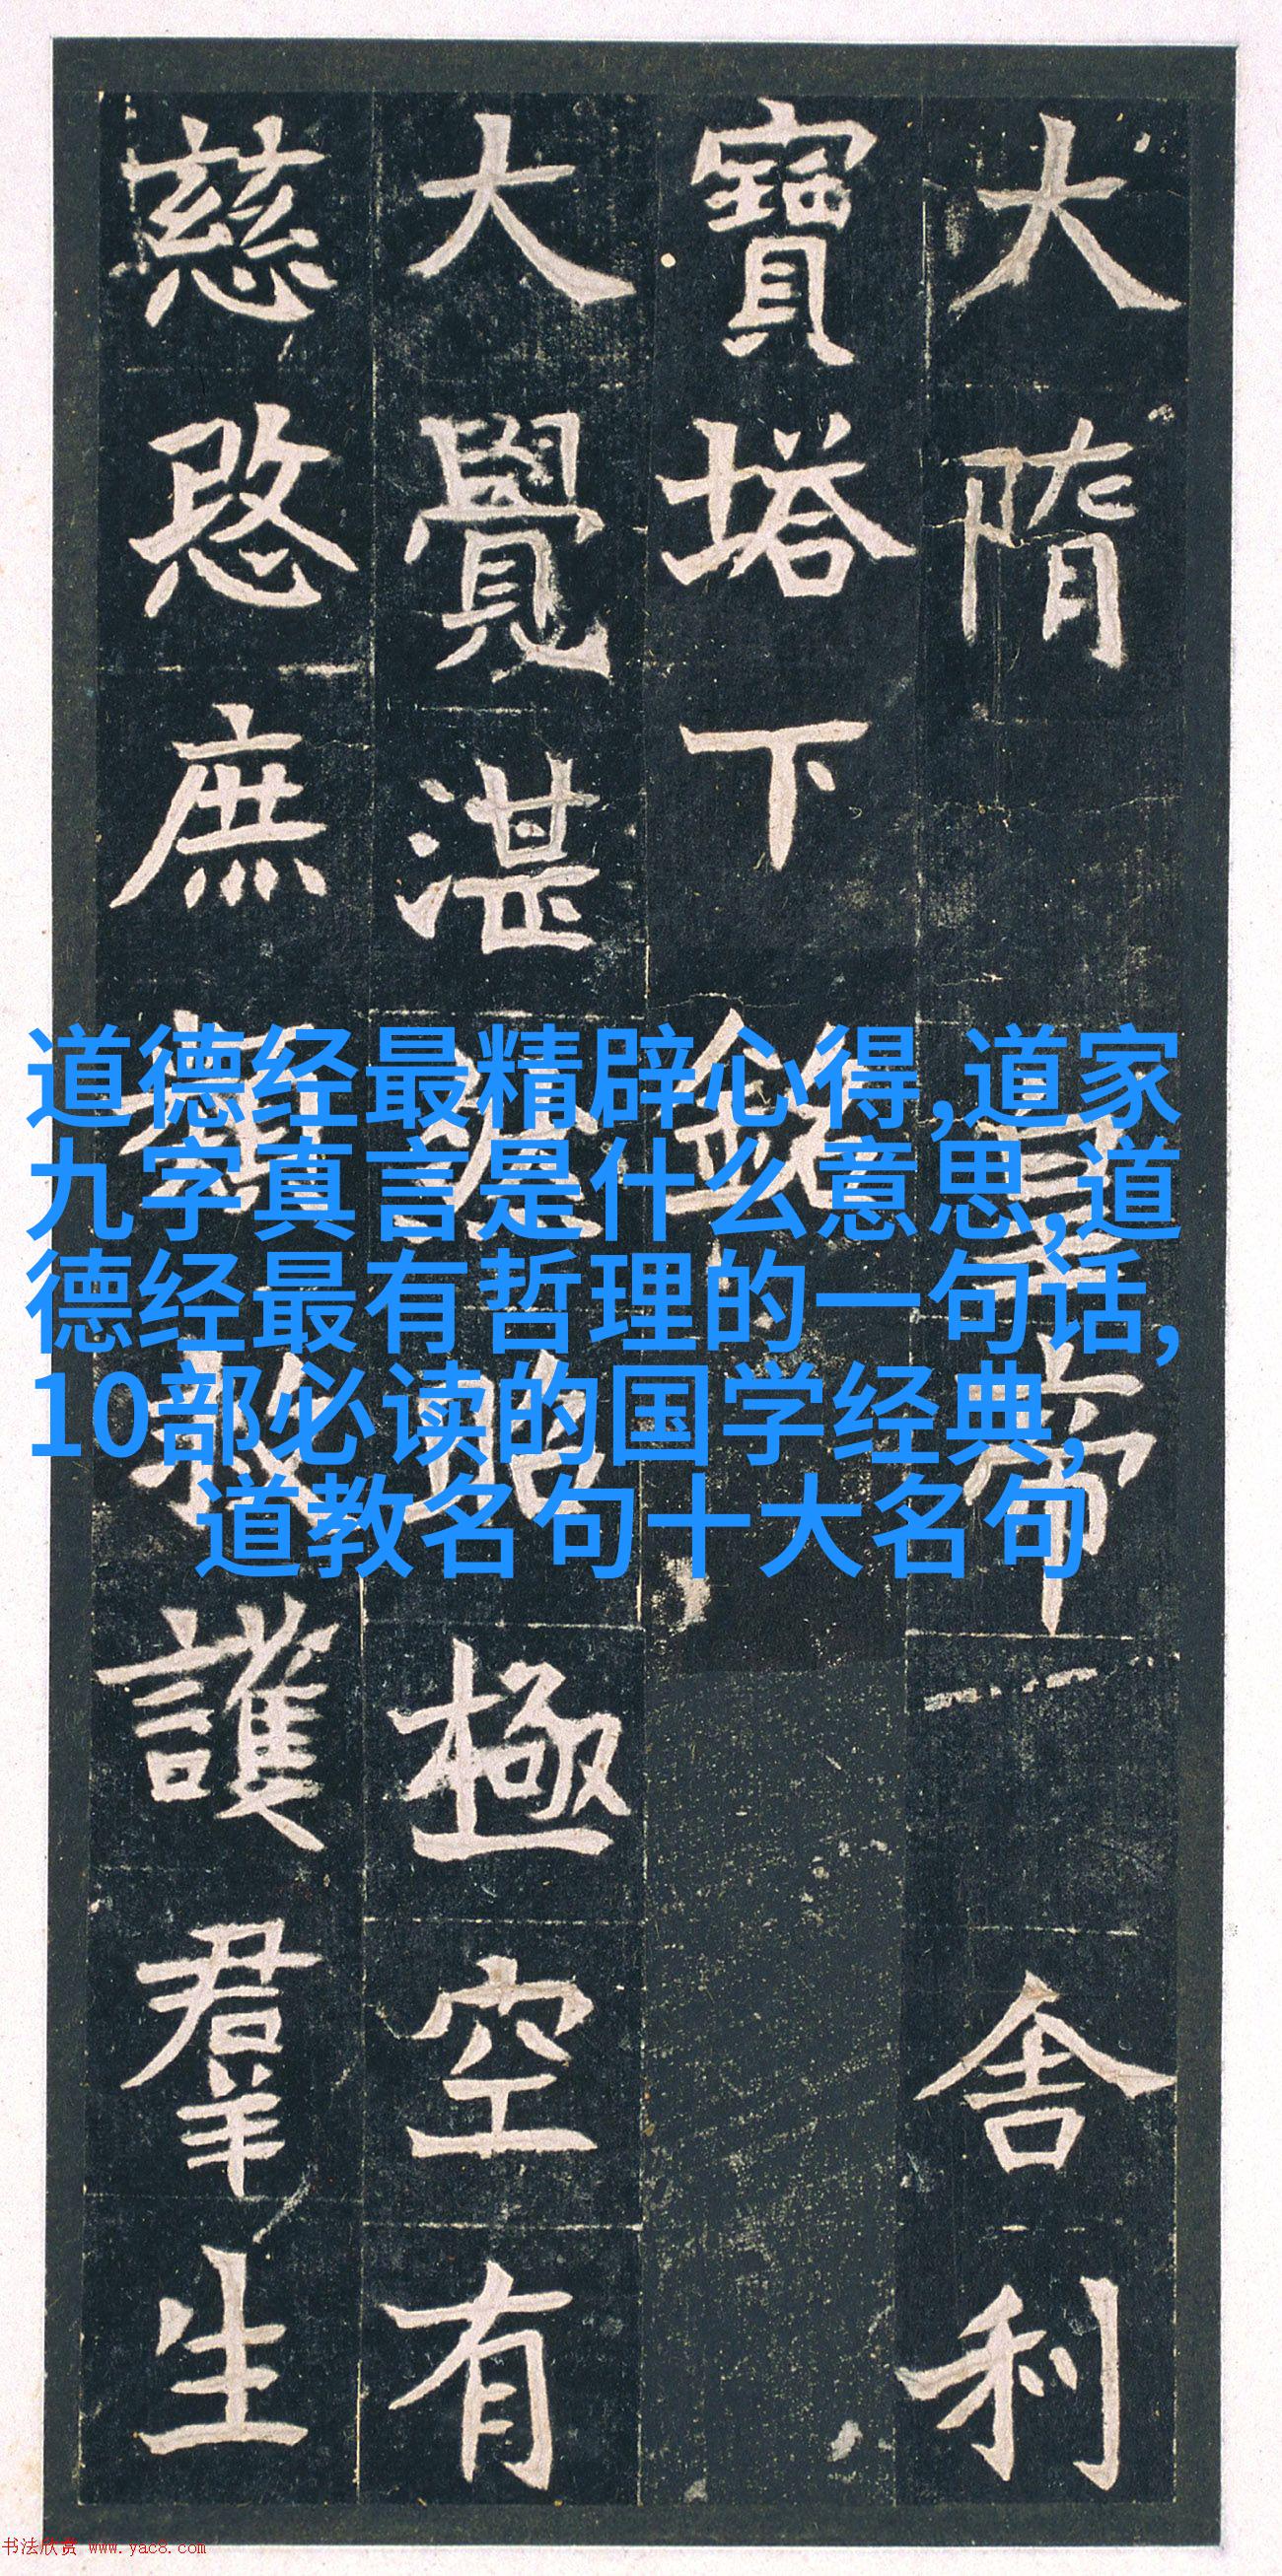 大隋皇帝舍利
寶塔下銘
大覺湛然昭極空有
慈愍庶類救護羣生
道德经最精辟心得,道家
九字真言是什么意思,道
德经最有哲理的一句话,
10部必读的国学经典,
道教名句十大名句
书法欣赏 www.yac8.com